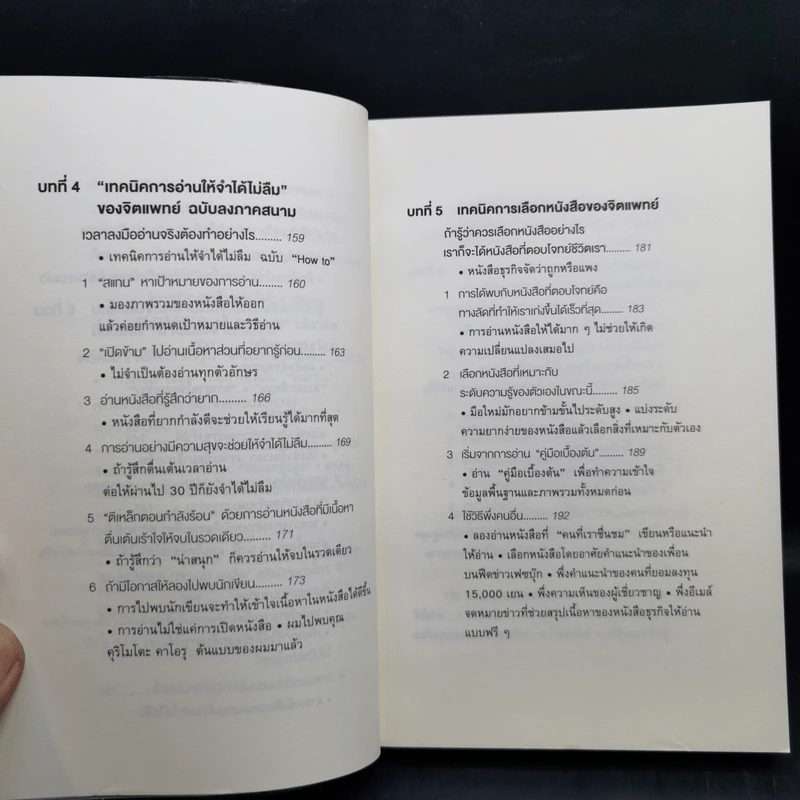 บทที่ 4 “เทคนิคการอ่านให้จำได้ไม่ลืม”
ของจิตแพทย์ ฉบับลงภาคสนาม
เวลาลงมืออ่านจริงต้องทำอย่างไร......... 159
• เทคนิคการอ่านให้จำได้ไม่ลืม ฉบับ “How to”
1 “สแกน” หาเป้าหมายของการอ่าน........ 160
• มองภาพรวมของหนังสือให้ออก
แล้วค่อยกำหนดเป้าหมายและวิธีอ่าน
2 “เปิดข้าม” ไปอ่านเนื้อหาส่วนที่อยากรู้ก่อน......... 163
• ไม่จำเป็นต้องอ่านทุกตัวอักษร
3 อ่านหนังสือที่รู้สึกว่ายาก......... 166
• หนังสือที่ยากกำลังดีจะช่วยให้เรียนรู้ได้มากที่สุด
4 การอ่านอย่างมีความสุขจะช่วยให้จำได้ไม่ลืม......... 169
• ถ้ารู้สึกตื่นเต้นเวลาอ่าน
ต่อให้ผ่านไป 30 ปีก็ยังจำได้ไม่ลืม
5 “ตีเหล็กตอนกำลังร้อน” ด้วยการอ่านหนังสือที่มีเนื้อหา
ตื่นเต้นเร้าใจให้จบในรวดเดียว......... 171
• ถ้ารู้สึกว่า “น่าสนุก” ก็ควรอ่านให้จบในรวดเดียว
6 ถ้ามีโอกาสให้ลองไปพบนักเขียน......... 173
• การไปพบนักเขียนจะทำให้เข้าใจเนื้อหาในหนังสือได้ดีขึ้น
• การอ่านไม่ใช่แค่การเปิดหนังสือ • ผมไปพบคุณ
คุริโมโตะ คาโอรุ ต้นแบบของผมมาแล้ว
บทที่ 5 เทคนิคการเลือกหนังสือของจิตแพทย์
ถ้ารู้ว่าควรเลือกหนังสืออย่างไร
เราก็จะได้หนังสือที่ตอบโจทย์ชีวิตเรา......... 181
• หนังสือธุรกิจจัดว่าถูกหรือแพง
1 การได้พบกับหนังสือที่ตอบโจทย์คือ
ทางลัดที่ทำให้เราเก่งขึ้นได้เร็วที่สุด......... 183
• การอ่านหนังสือให้ได้มาก ๆ ไม่ช่วยให้เกิด
ความเปลี่ยนแปลงเสมอไป
2 เลือกหนังสือที่เหมาะกับ
ระดับความรู้ของตัวเองในขณะนี้......... 185
• มือใหม่มักอยากข้ามขั้นไประดับสูง • แบ่งระดับ
ความยากง่ายของหนังสือแล้วเลือกสิ่งที่เหมาะกับตัวเอง
3 เริ่มจากการอ่าน “คู่มือเบื้องต้น”......... 189
• อ่าน “คู่มือเบื้องต้น” เพื่อทำความเข้าใจ
ข้อมูลพื้นฐานและภาพรวมทั้งหมดก่อน
4 ใช้วิธีพึ่งคนอื่น......... 192
• ลองอ่านหนังสือที่ “คนที่เราชื่นชม” เขียนหรือแนะนำ
ให้อ่าน • เลือกหนังสือโดยอาศัยคำแนะนำของเพื่อน
บนฟีดข่าวเฟซบุ๊ก • พึ่งคำแนะนำของคนที่ยอมลงทุน
15,000 เยน • พึ่งความเห็นของผู้เชี่ยวชาญ • พึ่งอีเมล์
จดหมายข่าวที่ช่วยสรุปเนื้อหาของหนังสือธุรกิจให้อ่าน
แบบฟรี ๆ